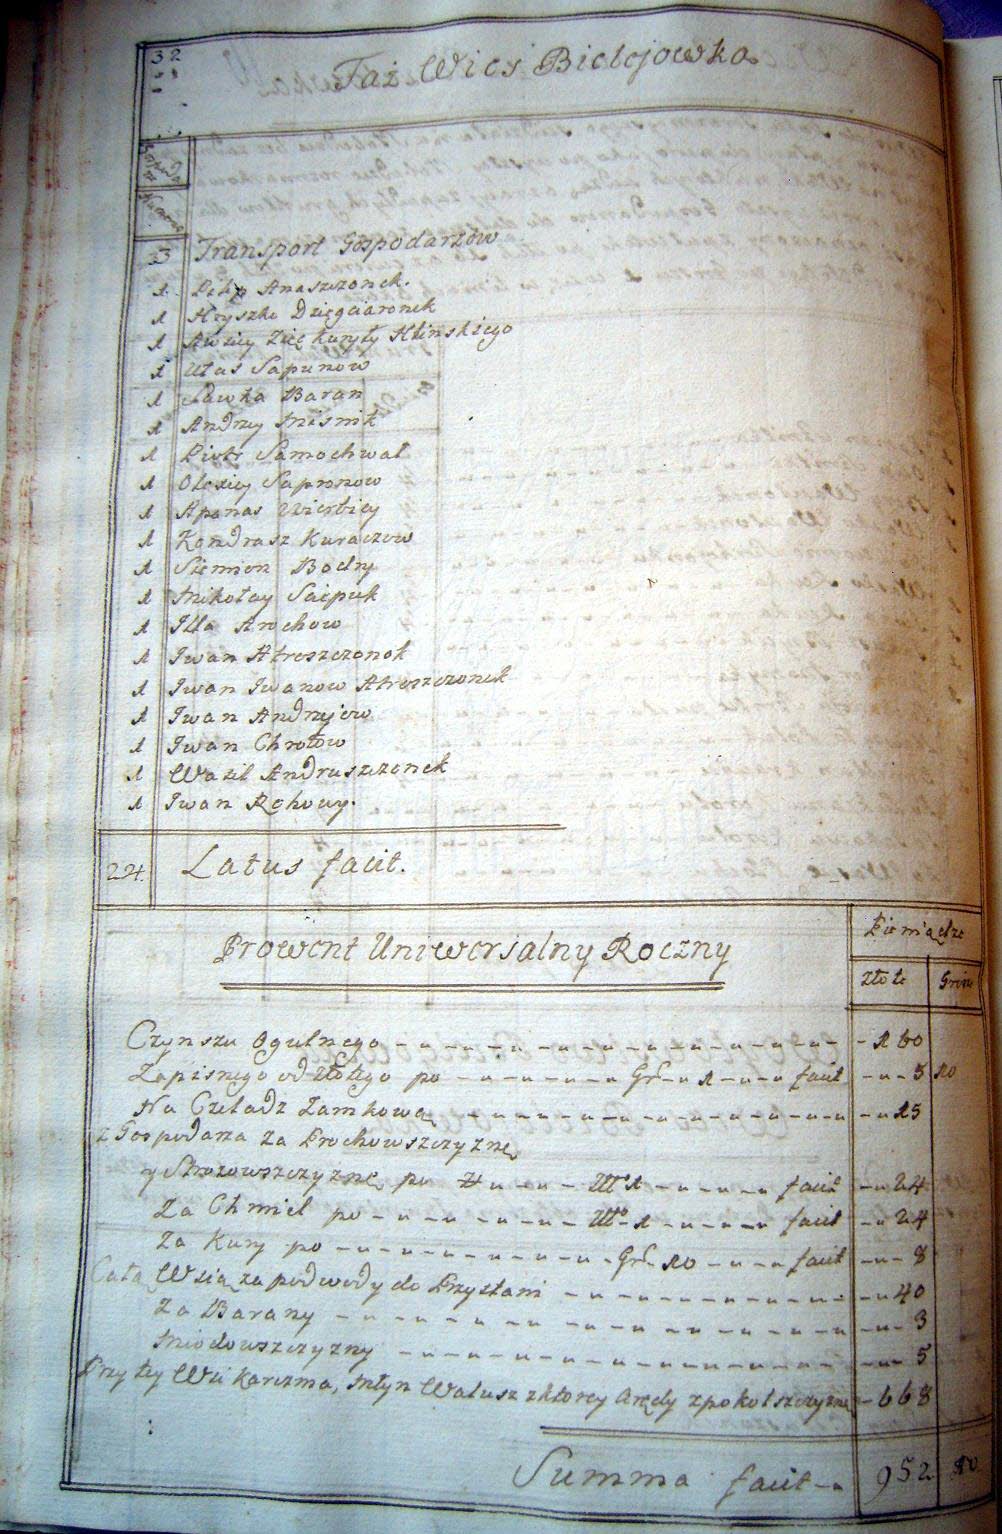 32
Taż Wies Bielejowka
3 Transport Gospodarzów
1 Anaszzonek.
1 Hryszko Dzięgciaronek
1 Zięć Kuryły Hlinskiego
1 Ułas Sapunow
1 Sawka Baran
1 Andrzey Misnik
1 Piotr Samochwał
1 Olexiey Sapronow
1 Apanas Wierbicy
1 Kondrasz Kuraczow
1 Siemion Bodny
1 Mikołay Saipuk
1 Illa Arochow
1 Iwan Atroszczonok
1 Iwan Iwanow Atroszczonek
1 Iwan Andrzejow
1 Iwan Chrołow
1 Wasil Andruszczonek
1 Iwan Rohowy.
22. Latus facit.
Prowent Uniwersalny Roczny
Pieniądze
złote Grosze
Czynszu Ogulnego - 160
Zapisnego od złotego po Gr. 1 facit - 5 10
Na Czeladz Zamkową - 15
z Gospodarza za Prochowszczyznę
y Strozowszczyznę po zł 1 facit - 24
Za Chmiel po zł 1 facit - 24
Za Kury po Gr. 10 facit - 8
Całą Wsią za podwody do Przystani - 40
Za Barany - 3
Miodowszczyzny - 5
Przy tey Wsi Karczma, Młyn Walusz z ktorey Arędy z pokotszczyzną - 668
Summa facit - 952 10